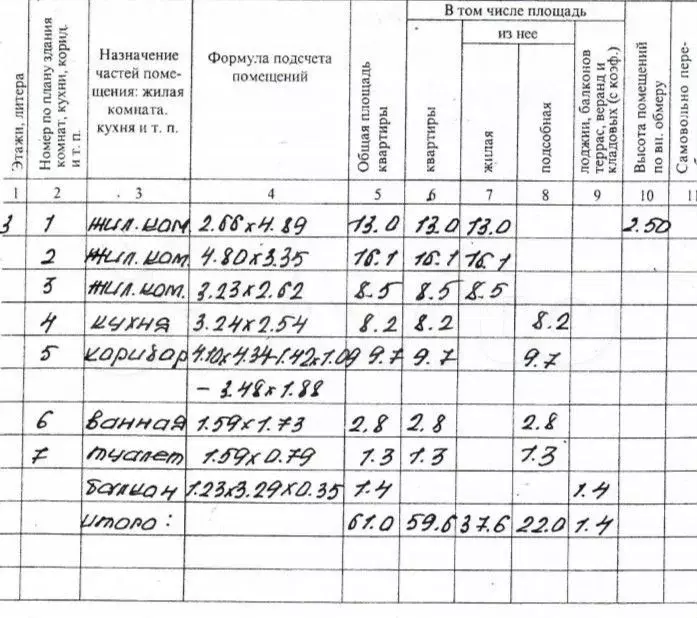 Этажи, литера
Номер по плану здания комнат, кухни, корид. и т. п.
Назначение
частей поме-
щения: жилая
комната.
кухня и т. п.
Формула подсчета
помещений
Общая площадь квартиры
В том числе площадь
из нее
квартиры
жилая
подсобная
лоджии, балконов террас, веранд и кладовых (с коэф.)
Высота помещений по вн. обмеру
Самовольно пере-
1 2 3 4 5 6 7 8 9 10 11
3 1 жил.ком. 2.66x4.89 13.0 13.0 13.0 2.50
2 жил.ком. 4.80x3.35 16.1 16.1 16.1
3 жил.ком. 3.23x2.62 8.5 8.5 8.5
4 кухня 3.24x2.54 8.2 8.2 8.2
5 коридор 4.10x4.34-1.42x1.09 9.7 9.7 9.7
- 3.48x1.88
6 ванная 1.59x1.73 2.8 2.8 2.8
7 туалет 1.59x0.79 1.3 1.3 1.3
балкон 1.23x3.29x0.35 1.4 1.4
итого: 61.0 59.6 37.6 22.0 1.4